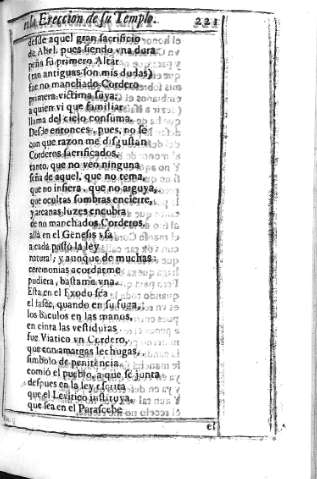 en la Ereccion de su Templo. 221
desde aquel gran sacrificio
de Abel, pues siendo vna dura
peña su primero Altar
(tan antiguas son mis dudas)
fue no manchado Cordero
primera victima suya;
a quien vi que familiar
llama del cielo consuma.
Desde entonces, pues, no sè
con que razon me disgustan
Corderos sacrificados,
tanto, que no veo ninguna
seña de aquel, que no tema,
que no infiera, que no arguya,
que ocultas sombras encierre,
y arcanas luzes encubra
de no manchados Corderos,
allà en el Genesis vsa
a cada passo la ley
natural; y aunque de muchas
ceremonias acordarme
pudiera, bastame vna.
Esta en el Exodo sea
el fasè, quando en su fuga,
los baculos en las manos,
en cinta las vestiduras
fue Viatico vn Cordero,
que con amargas lechugas,
simbolo de penitencia,
comiò el pueblo, a que se junta
despues en la ley escrita
que el Levitico instituya,
que sea en el Parascebe
el